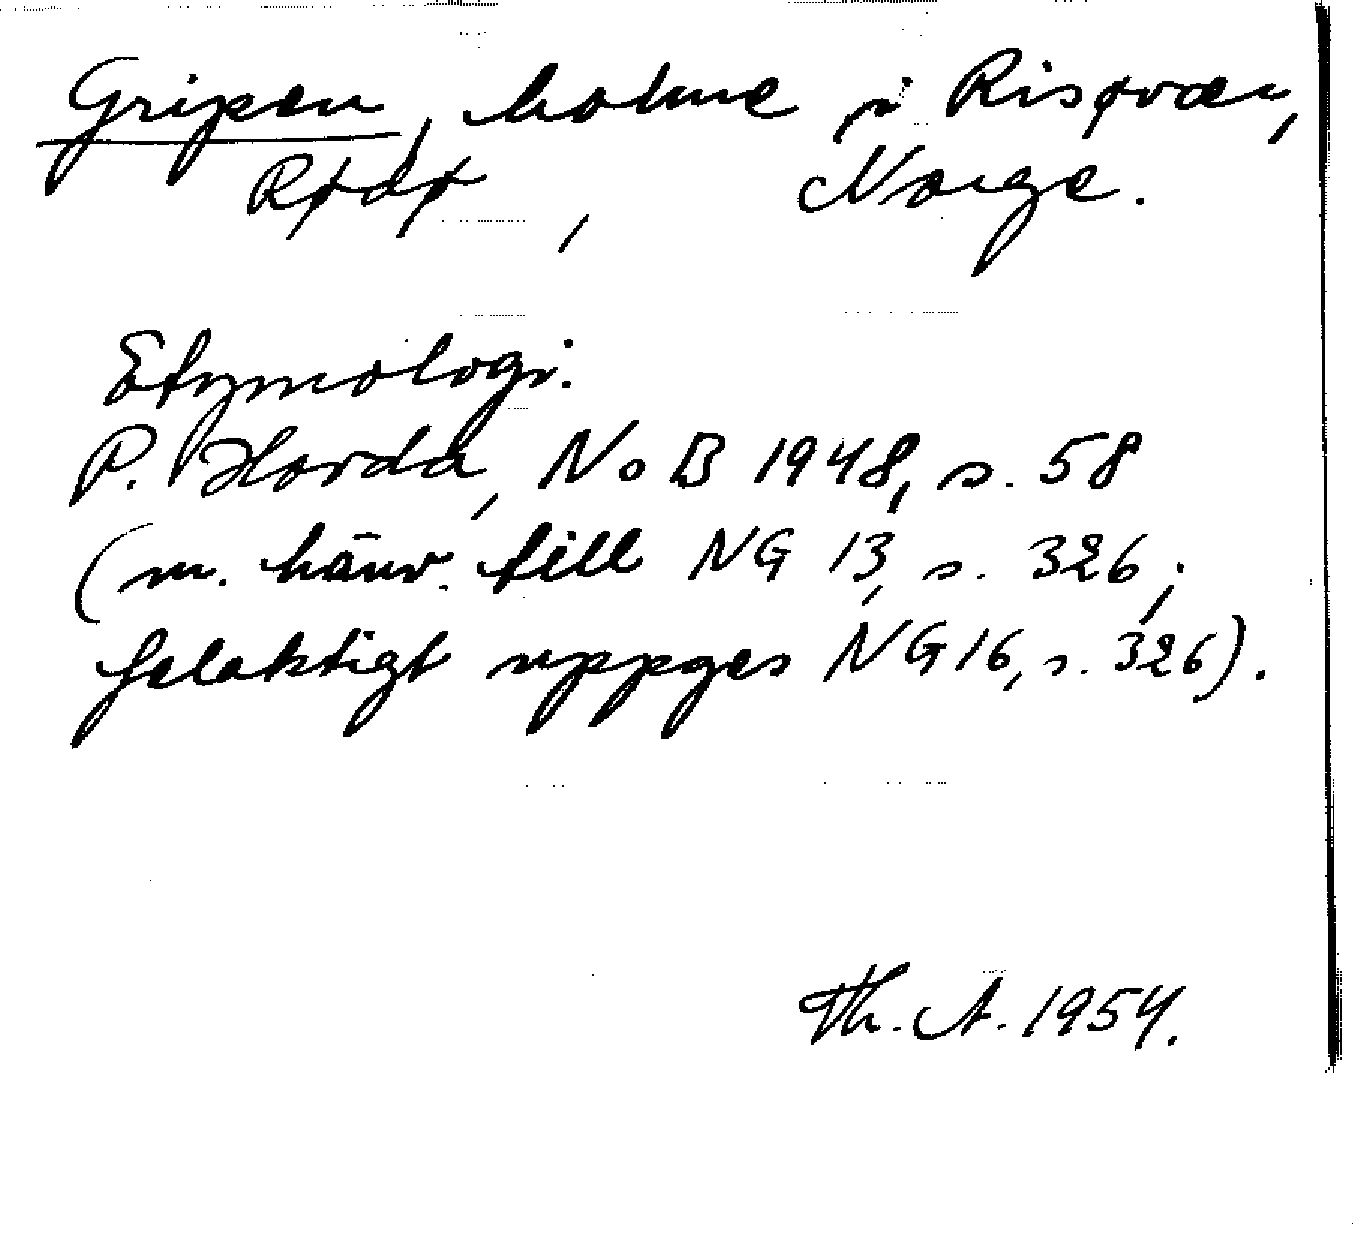 Gripen, holme i Risøvær,
Rødø, Norge.
Etymologi:
P. Hovda, NoB 1948, s. 58
(m. hänv. till NG 13, s. 326;
felaktigt uppges NG 16, s. 326).
Th. A. 1954.